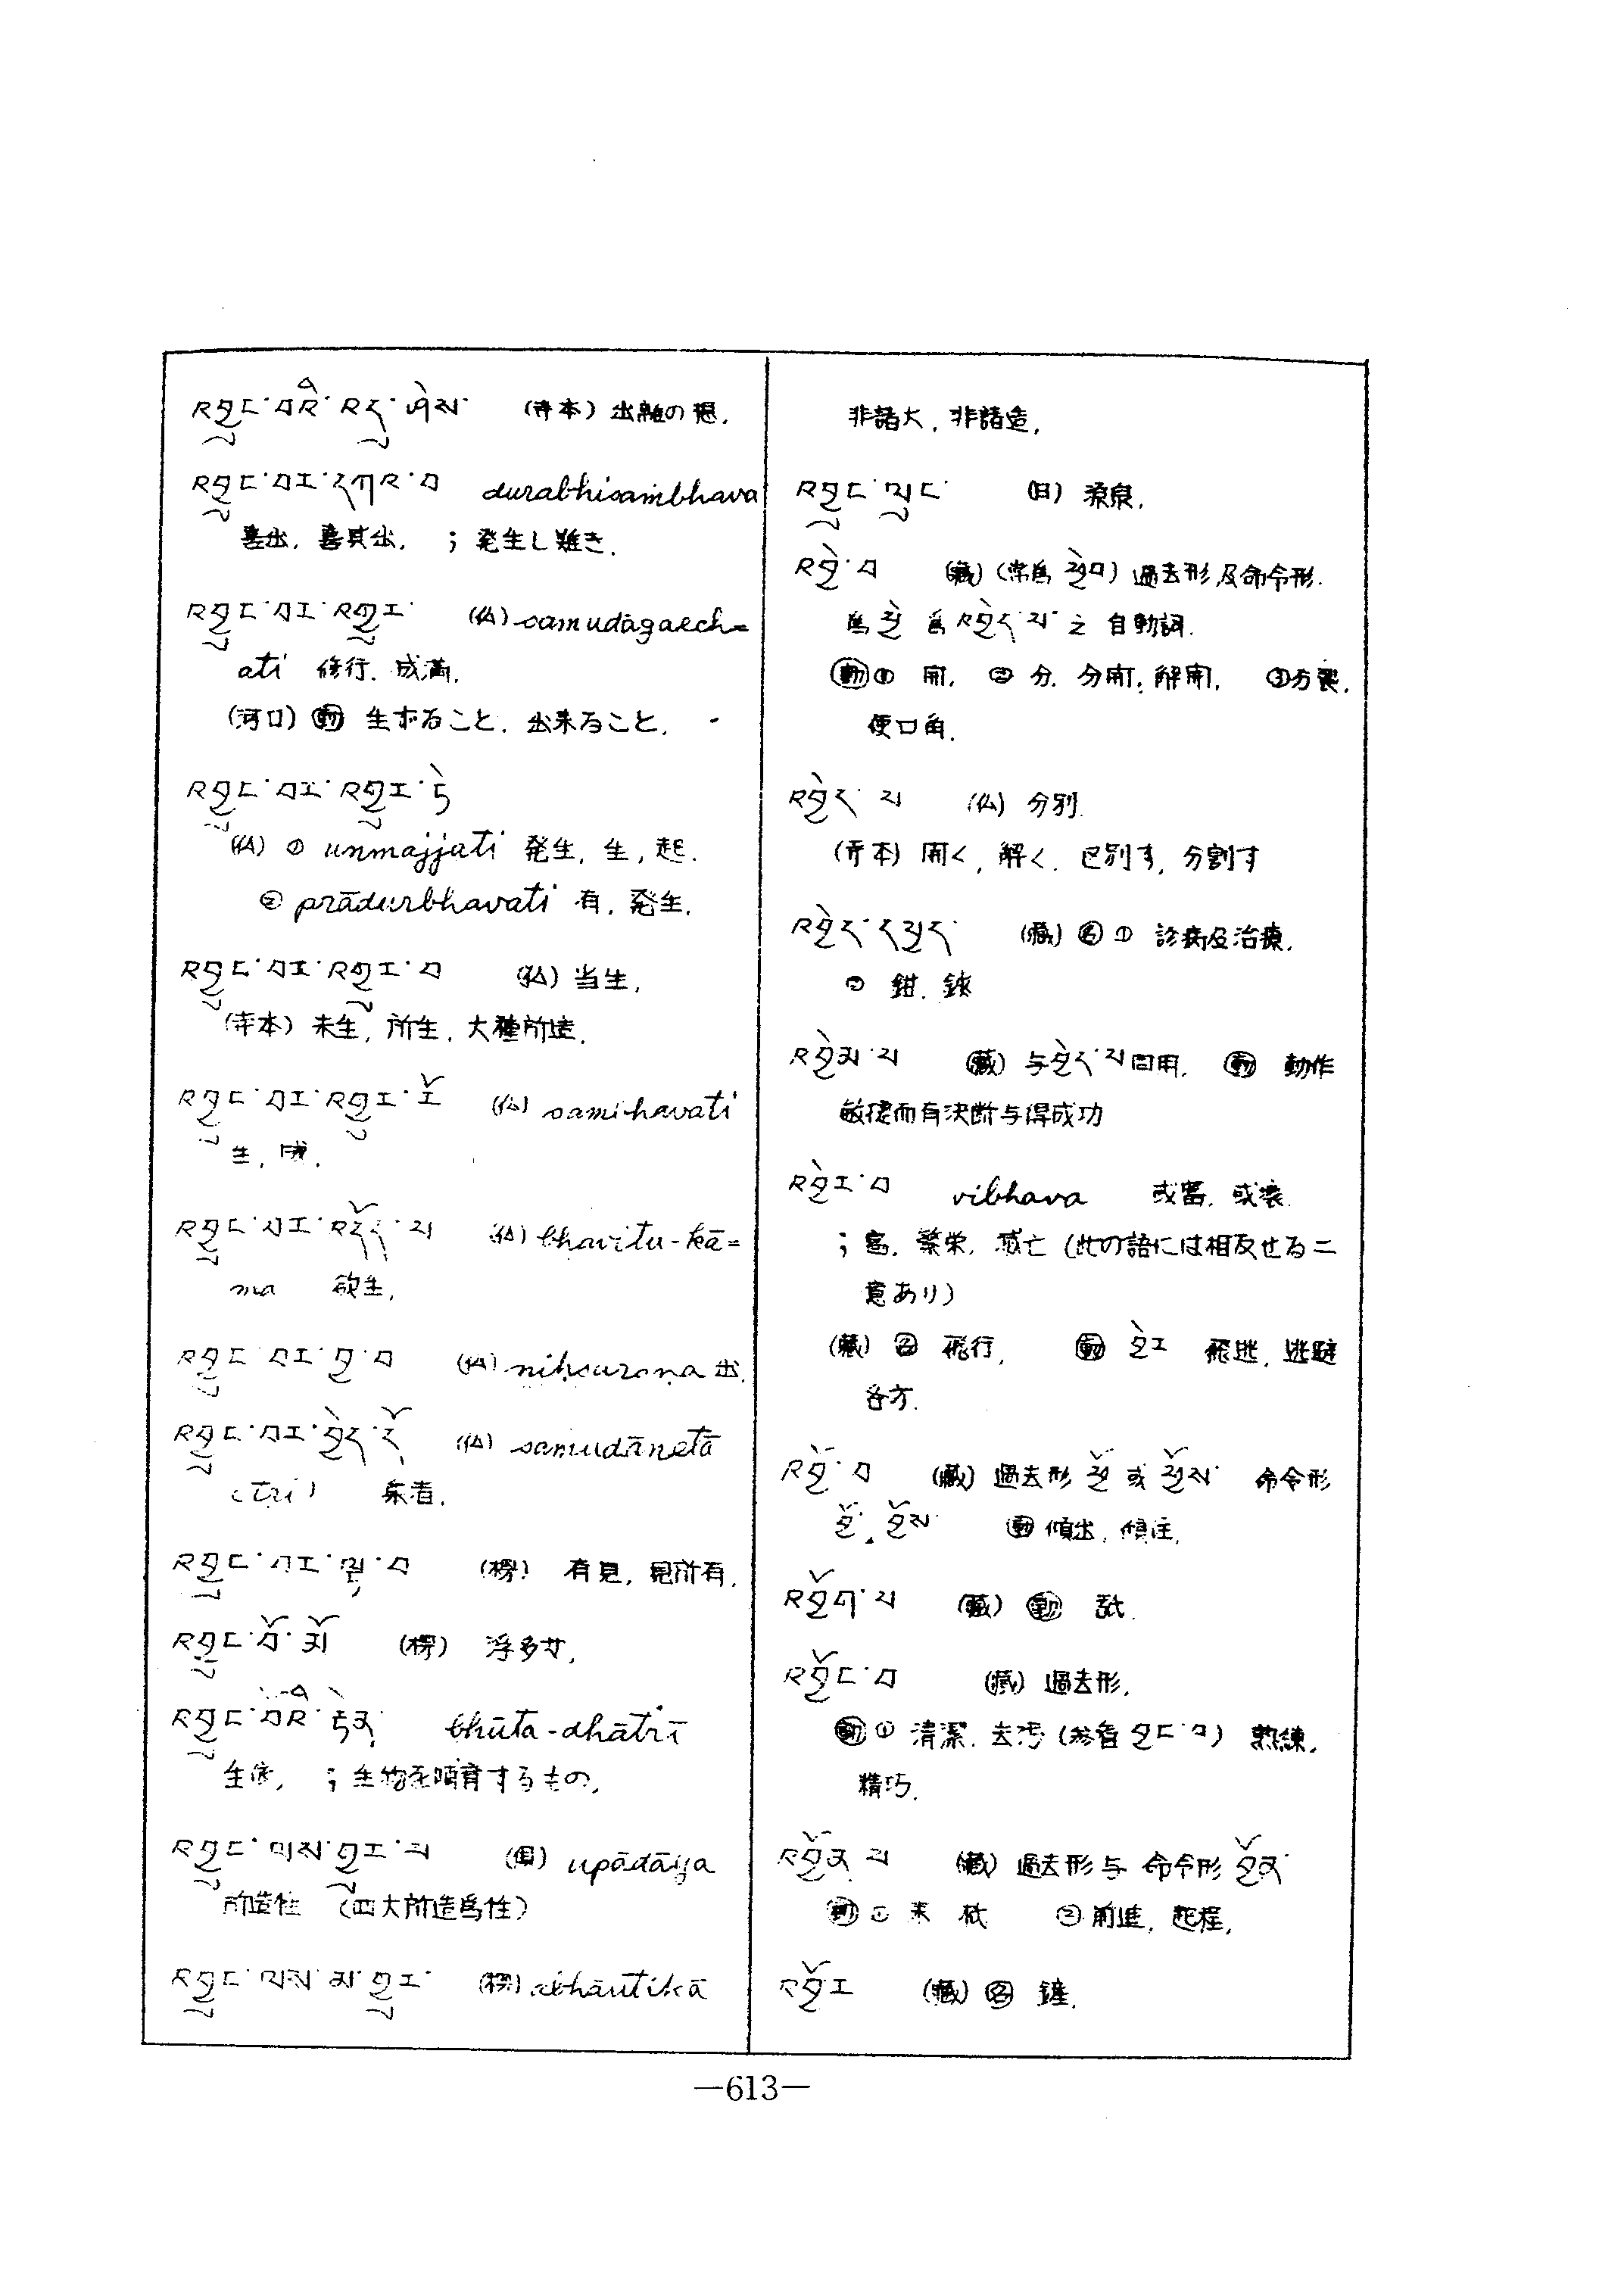 འབྱུང་བའི་འདུ་ཤེས་ (寺本) 出離の想.
འབྱུང་བར་དཀའ་བ durabhisaṁbhava
善出, 善其出, ; 発生し難き.
འབྱུང་བར་འགྱུར་ (仏) samudāgacch=
ati 修行. 成満.
(河口) 動 生ずること. 出来ること.
འབྱུང་བར་འགྱུར་ཏེ
(仏) ① unmajjati 発生, 生, 起.
② prādurbhavati 有, 発生.
འབྱུང་བར་འགྱུར་བ (仏) 当生,
(寺本) 未生, 所生, 大種所造.
འབྱུང་བར་འགྱུར་རོ (仏) saṁbhavati
生, 成.
འབྱུང་བར་འདོད་པ (仏) bhavitu-kā=
ma 欲生,
འབྱུང་བར་བྱ་བ (仏) niḥsaraṇa 出.
འབྱུང་བར་བྱེད་དོ (仏) samudānetā
(tṛi) 集者.
འབྱུང་བར་ལྟ་བ (楞) 有見, 見所有.
འབྱུང་བོ་མོ (楞) 浮多女,
འབྱུང་བོའི་ bhūta-dhātrī
生 ; 生物を哺育するもの.
འབྱུང་ལས་གྱུར་པ upādāya
所造性 (四大所造爲性)
འབྱུང་ལས་མ་གྱུར་ (楞)
非諸大, 非諸造,
འབྱུང་ལྡང་ 源泉,
འབྱེ་བ (藏) (常爲 ) 過去形及命令形.
爲 བྱེ 爲 འབྱེད་པ་ 之 自動詞.
動 ① 開, ② 分, 分開, 解開, ③ 分裂,
便口角.
འབྱེད་པ (仏) 分別.
(寺本) 開く, 解く, 区別す, 分割す
འབྱེད་དཔྱད་ (藏) 名 ① 診病及治療,
② 鉗, 鋏
འབྱེམ་པ (藏) 与 པ 同用, 動 動作
敏捷而有決断与得成功
འབྱེར་བ vibhava 或富, 或壊.
; 富, 繁栄, 滅亡 (此の語には相反せる二
意あり)
(藏) 名 飛行, 動 བྱེར 飛逃, 逃避
各方.
འབྱོ་བ (藏) 過去形 ཕྱོ 或 ཕྱོས་ 命令形
བྱོ. བྱོས 動 傾出, 傾注,
འབྱོག་པ (藏) 動 舐.
འབྱོང་བ (藏) 過去形,
動 ① 清潔, 去汚 (参看 བྱང་བ) 熟練,
精巧.
འབྱོན་པ (藏) 過去形与 命令形 བྱོན་
動 ① 来 ② 前進, 起程,
འབྱོར (藏) 名
—613—